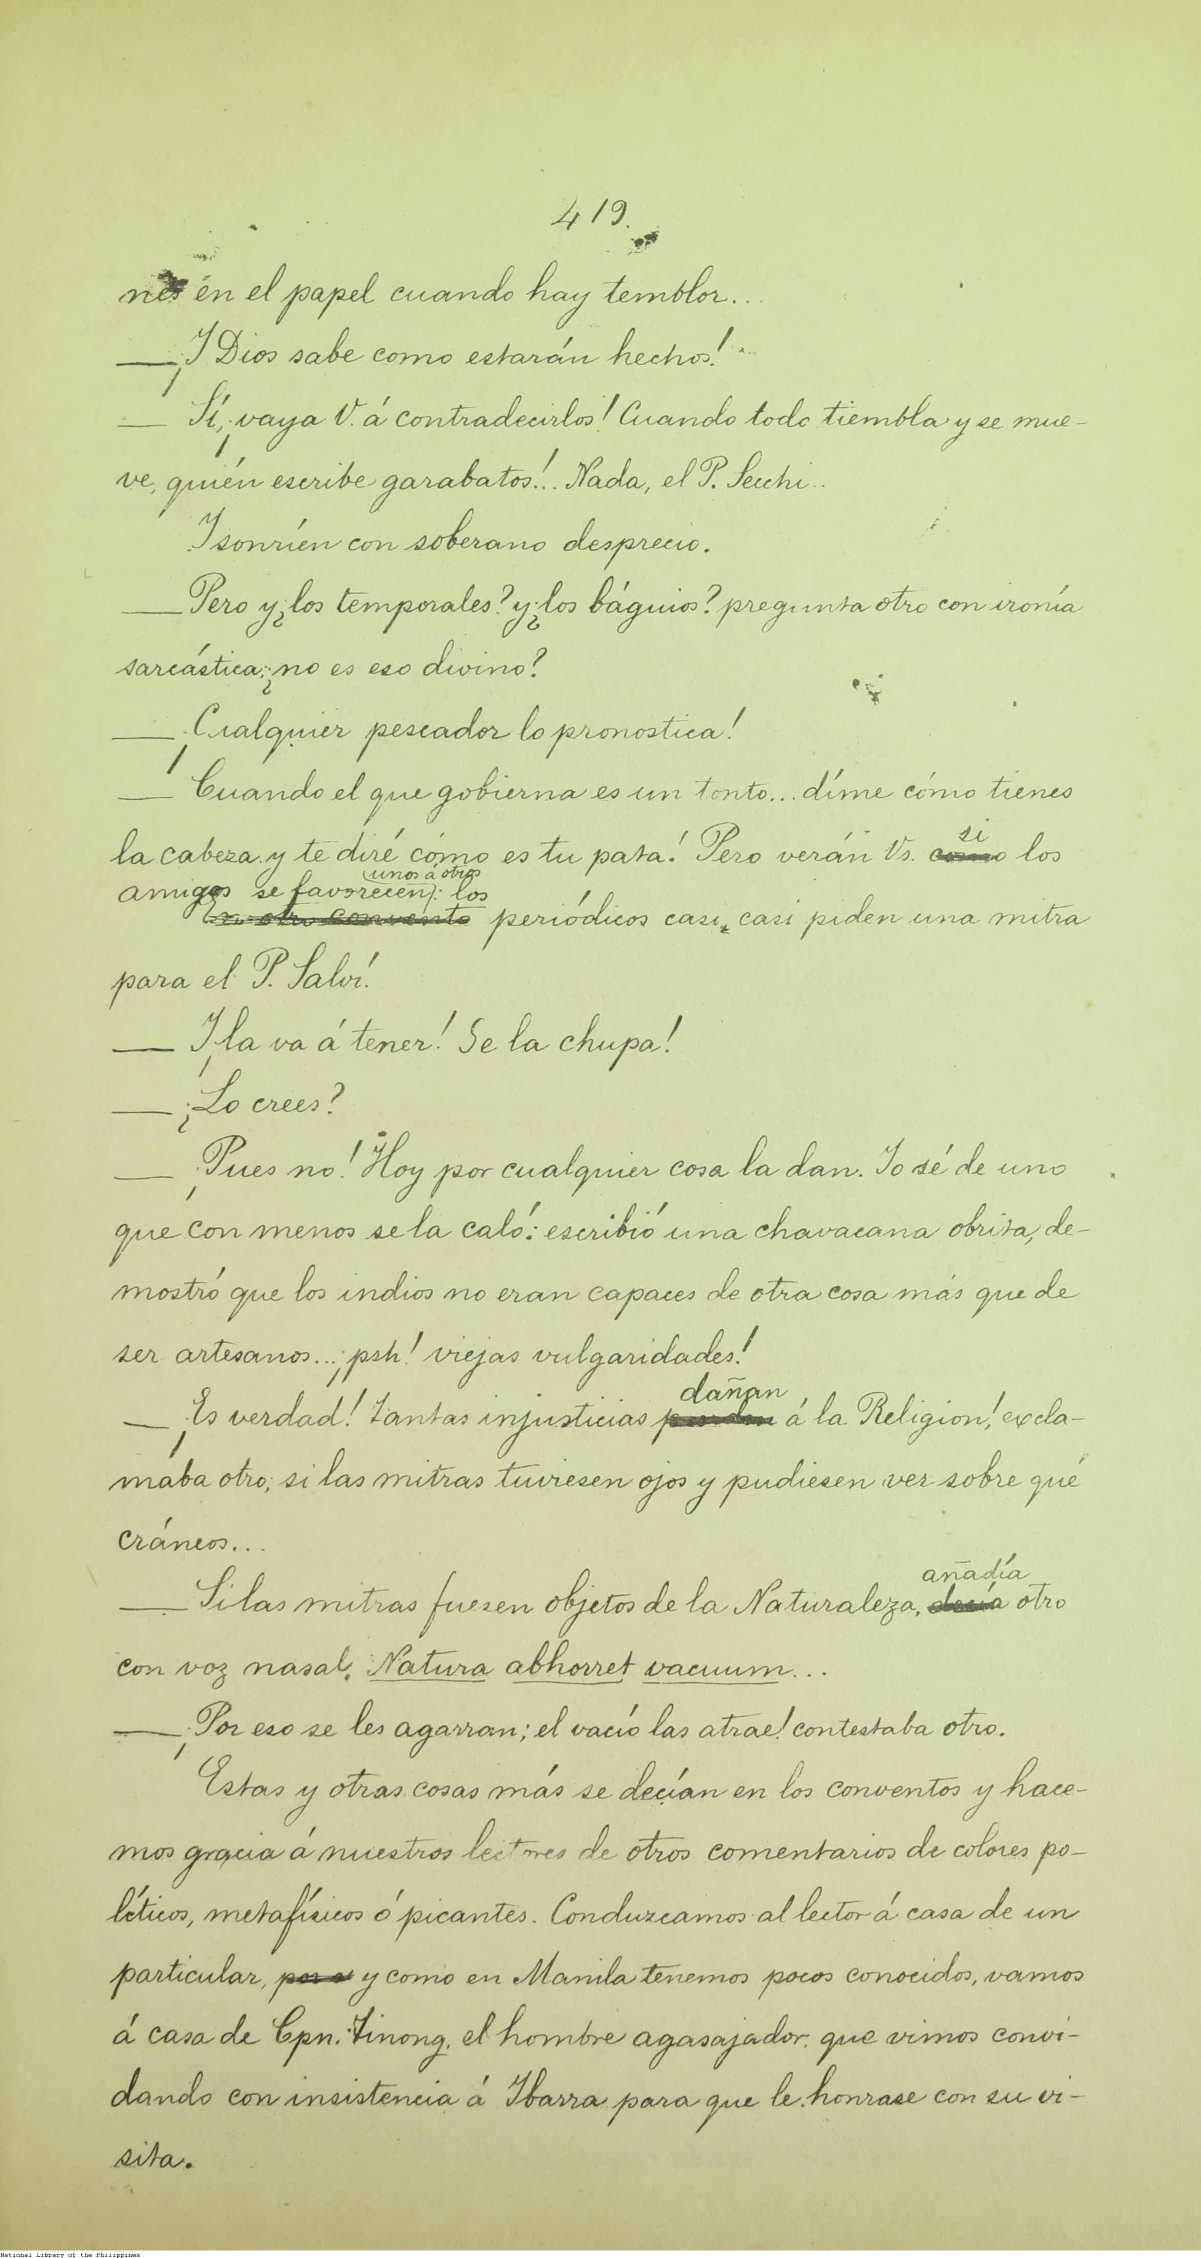 419.
nes en el papel cuando hay temblor...
— ¡Y Dios sabe como estarán hechos!
— Sí, ¡vaya V. á contradecirlos! Cuando todo tiembla y se mue-
ve, quién escribe garabatos!.. Nada, el P. Secchi..
Y sonríen con soberano desprecio.
— Pero y ¿los temporales? y ¿los báguios? pregunta otro con ironía
sarcástica; ¿no es eso divino?
— ¡Cualquier pescador lo pronostica!
— Cuando el que gobierna es un tonto... díme cómo tienes
si
la cabeza y te diré cómo es tu pata! Pero verán Vs. como los
unos á otros
amigos se favorecen: los
en otro convento periódicos casi, casi piden una mitra
para el P. Salví!
— Y ¡la va á tener! Se la chupa!
— ¿Lo crees?
— ¡Pues no! Hoy por cualquier cosa la dan. Yo sé de uno
que con menos se la caló: escribió una chavacana obrita, de-
mostró que los indios no eran capaces de otra cosa más que de
ser artesanos... ¡psh! viejas vulgaridades!
dañan
— ¡Es verdad! Tantas injusticias á la Religion! excla-
maba otro; si las mitras tuviesen ojos y pudiesen ver sobre qué
cráneos...
añadía
— Si las mitras fuesen objetos de la Naturaleza, decía otro
con voz nasal. Natura abhorret vacuum...
— ¡Por eso se les agarran; el vacío las atrae! contestaba otro.
Estas y otras cosas más se decían en los conventos y hace-
mos gracia á nuestros lectores de otros comentarios de colores po-
líticos, metafísicos ó picantes. Conduzcamos al lector á casa de un
particular, y como en Manila tenemos pocos conocidos, vamos
á casa de Cpn. Tinong, el hombre agasajador, que vimos convi-
dando con insistencia á Ibarra para que le honrase con su vi-
sita.
National Library of the Philippines